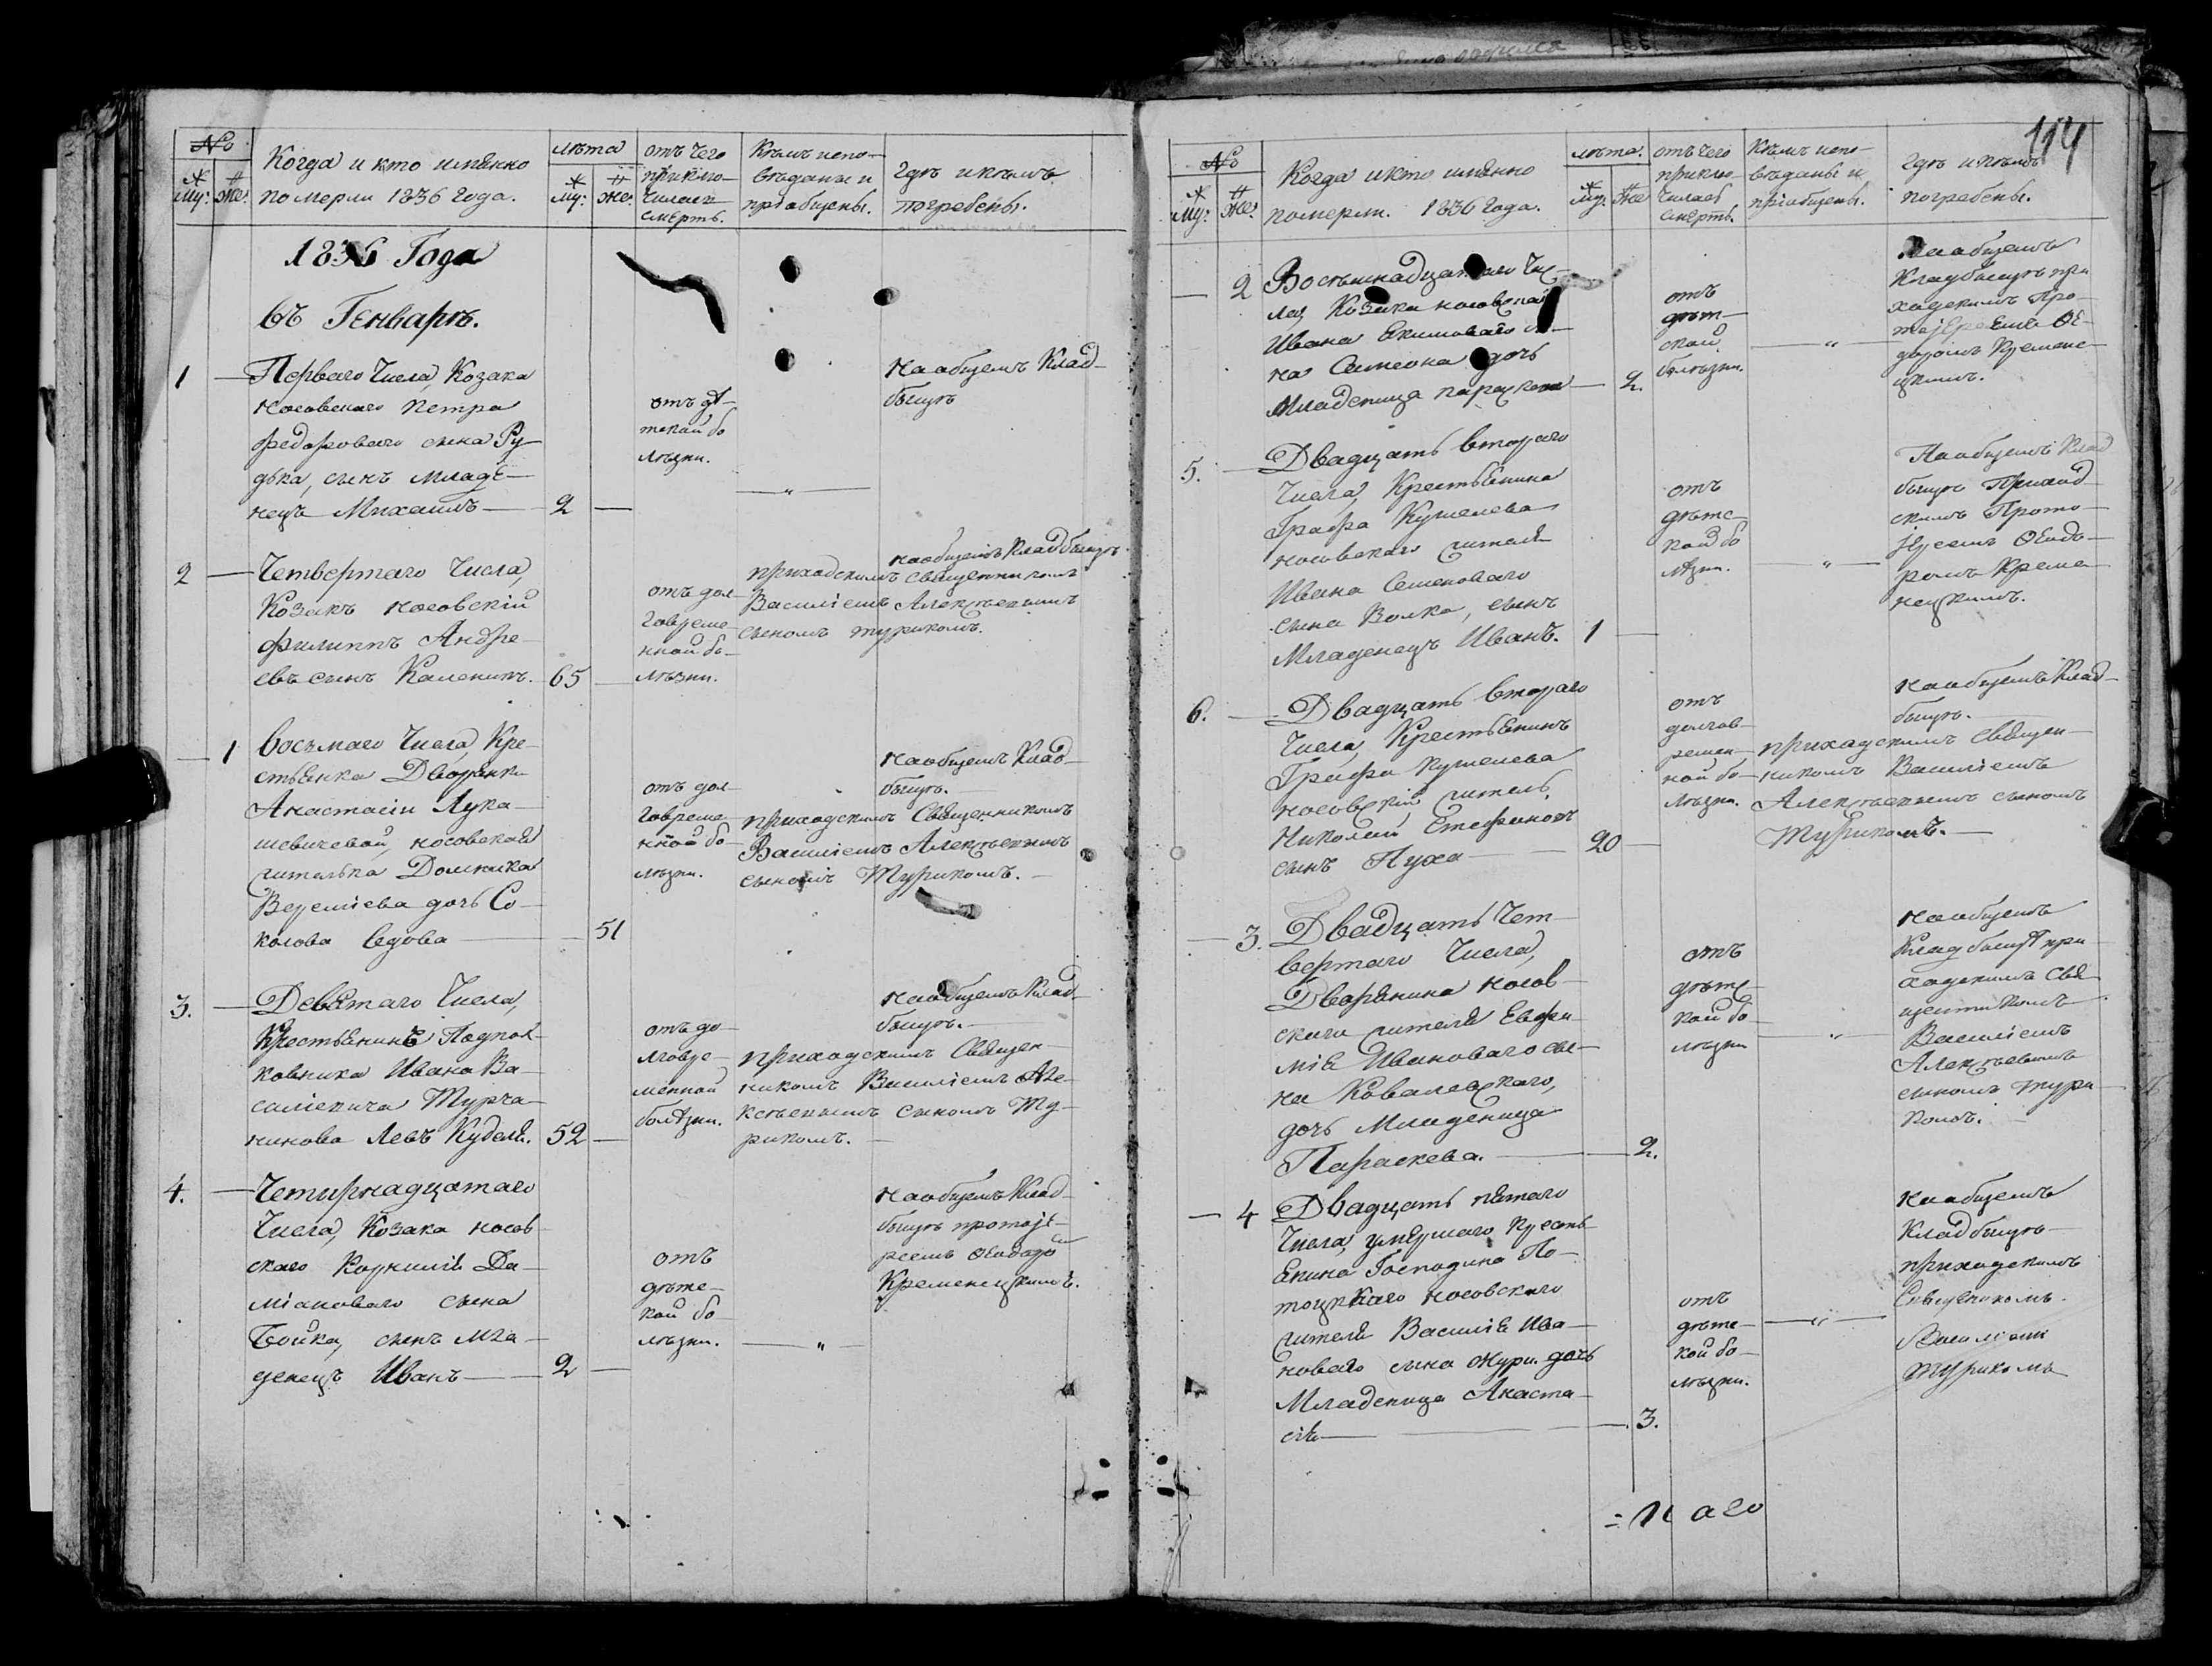 №
Му: Же:
Когда и кто имянно
померли 1836 года.
лѣта
Му: Же:
отъ чего
приклю-
чилася
смерть.
Кѣмъ испо-
вѣданы и
пріобщены.
Гдѣ и кѣмъ
погребены.
1836 Года
въ Генварѣ.
1 — Перваго Числа, Козака
Носовскаго Петра
Федороваго сына Ру-
дька, сынъ младе-
нецъ Михаилъ — 2 —
отъ дѣ-
тской бо
лѣзни.
— „ —
на общемъ Клад-
бищѣ
2 — Четвертаго Числа,
Козакъ носовскій
Филиппъ Андре-
евъ сынъ Каленикъ. 65 —
отъ дол-
говреме-
нной бо-
лѣзни.
приходскимъ священникомъ
Василіемъ Алексѣевымъ
сыномъ Турикомъ.
на общемъ Кладбищѣ
— 1 Восьмаго Числа, Кре-
стьянка Дворянки
Анастасіи Лука-
шевичевой, носовская
жителька Домника
Веремѣева дочь Со-
колова вдова — 51
отъ дол-
говреме-
нной бо-
лѣзни.
приходскимъ Священникомъ
Василіемъ Алексѣевымъ
сыномъ Турикомъ. —
на общемъ Клад-
бищѣ. —
3. — Девятаго Числа,
Крестьянинъ Подпол-
ковника Ивана Ва-
силіевича Турча-
нинова Левъ Куделя. 52 —
отъ до-
лговре-
менной
болѣзни.
приходскимъ Священ-
никомъ Василіемъ Але-
ксѣевымъ сыномъ Ту-
рикомъ. —
на общемъ Клад-
бищѣ. —
4. — Четырнадцатаго
Числа, Козака носов-
скаго Корнилія Да-
міановаго сына
Бойка, сынъ мла-
денецъ Иванъ — 2 —
отъ
дѣтс-
кой бо-
лѣзни.
— „ —
на общемъ Клад-
бищѣ протоіе-
реемъ Ѳеодоро
Кременецкимъ.
114
№
Му: Же:
Когда и кто имянно
померли. 1836 года.
лѣта.
Му: Же
отъ чего
приклю-
чилась
смерть.
Кѣмъ испо-
вѣданы и
пріобщены.
Гдѣ и кѣмъ
погребены.
— 2 Восемнадцатаго Чис-
ла, Козака носовскаго
Ивана Екимоваго сы-
на Симеона дочь
Младеница Параскева — 2.
отъ
дѣт-
ской
болѣзни.
— „ —
На общемъ
Кладбищѣ при
ходскимъ Про-
тоіереемъ Ѳе-
доромъ Кременс-
цкимъ.
5. — Двадцать втораго
Числа, Крестьянина
Графа Кушелева
носовскаго жителя
Ивана Семеноваго
сына Волка, сынъ
Младенецъ Иванъ. 1 —
отъ
дѣтс-
кой бо
лѣзни.
— „ —
На общемъ Клад
бищѣ Приход-
скимъ Прото-
іереемъ Ѳеодо-
ромъ Креме-
нецкимъ.
6. — Двадцать втораго
Числа, Крестьянинъ
Графа Кушелева
носовскій житель
Николай Стефановъ
сынъ Пуха — 20 —
отъ
долгов-
ремен-
ной бо-
лѣзни.
приходскимъ Священ-
никомъ Василіемъ
Алексѣевымъ сыномъ
Турикомъ. —
на общемъ Клад-
бищѣ. —
— 3. Двадцать Чет-
вертаго Числа,
Дворянина носов-
скаго жителя Евфи-
мія Ивановаго сы-
на Ковалевскаго,
дочь Младеница
Параскева. — 2.
отъ
дѣтс-
кой бо-
лѣзни
— „ —
на общемъ
Кладбищѣ при
ходскимъ Свя-
щенникомъ
Василіемъ
Алексѣевымъ
сыномъ Тури-
комъ. —
— 4 Двадцать пятаго
Числа, умершаго Кресть-
янина Господина По-
тоцкаго носовскаго
жителя Василія Ива-
новаго сына Жури. дочь
Младеница Анаста-
сія — 3.
отъ
дѣтс-
кой бо-
лѣзни.
— „ —
на общемъ
Кладбищѣ
приходскимъ
Священикомъ
Василіемъ
Турикомъ